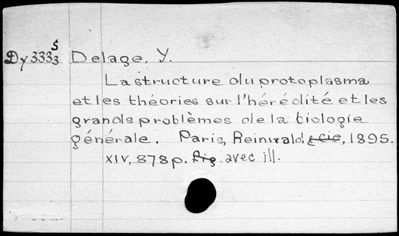 Dy 333 5/3 Delage, Y.
La structure du protoplasma
et les théories sur l'hérédité et les
grands problèmes de la biologie
générale. Paris, Reinwald & cie, 1895.
XIV, 878 p. fig. avec ill.